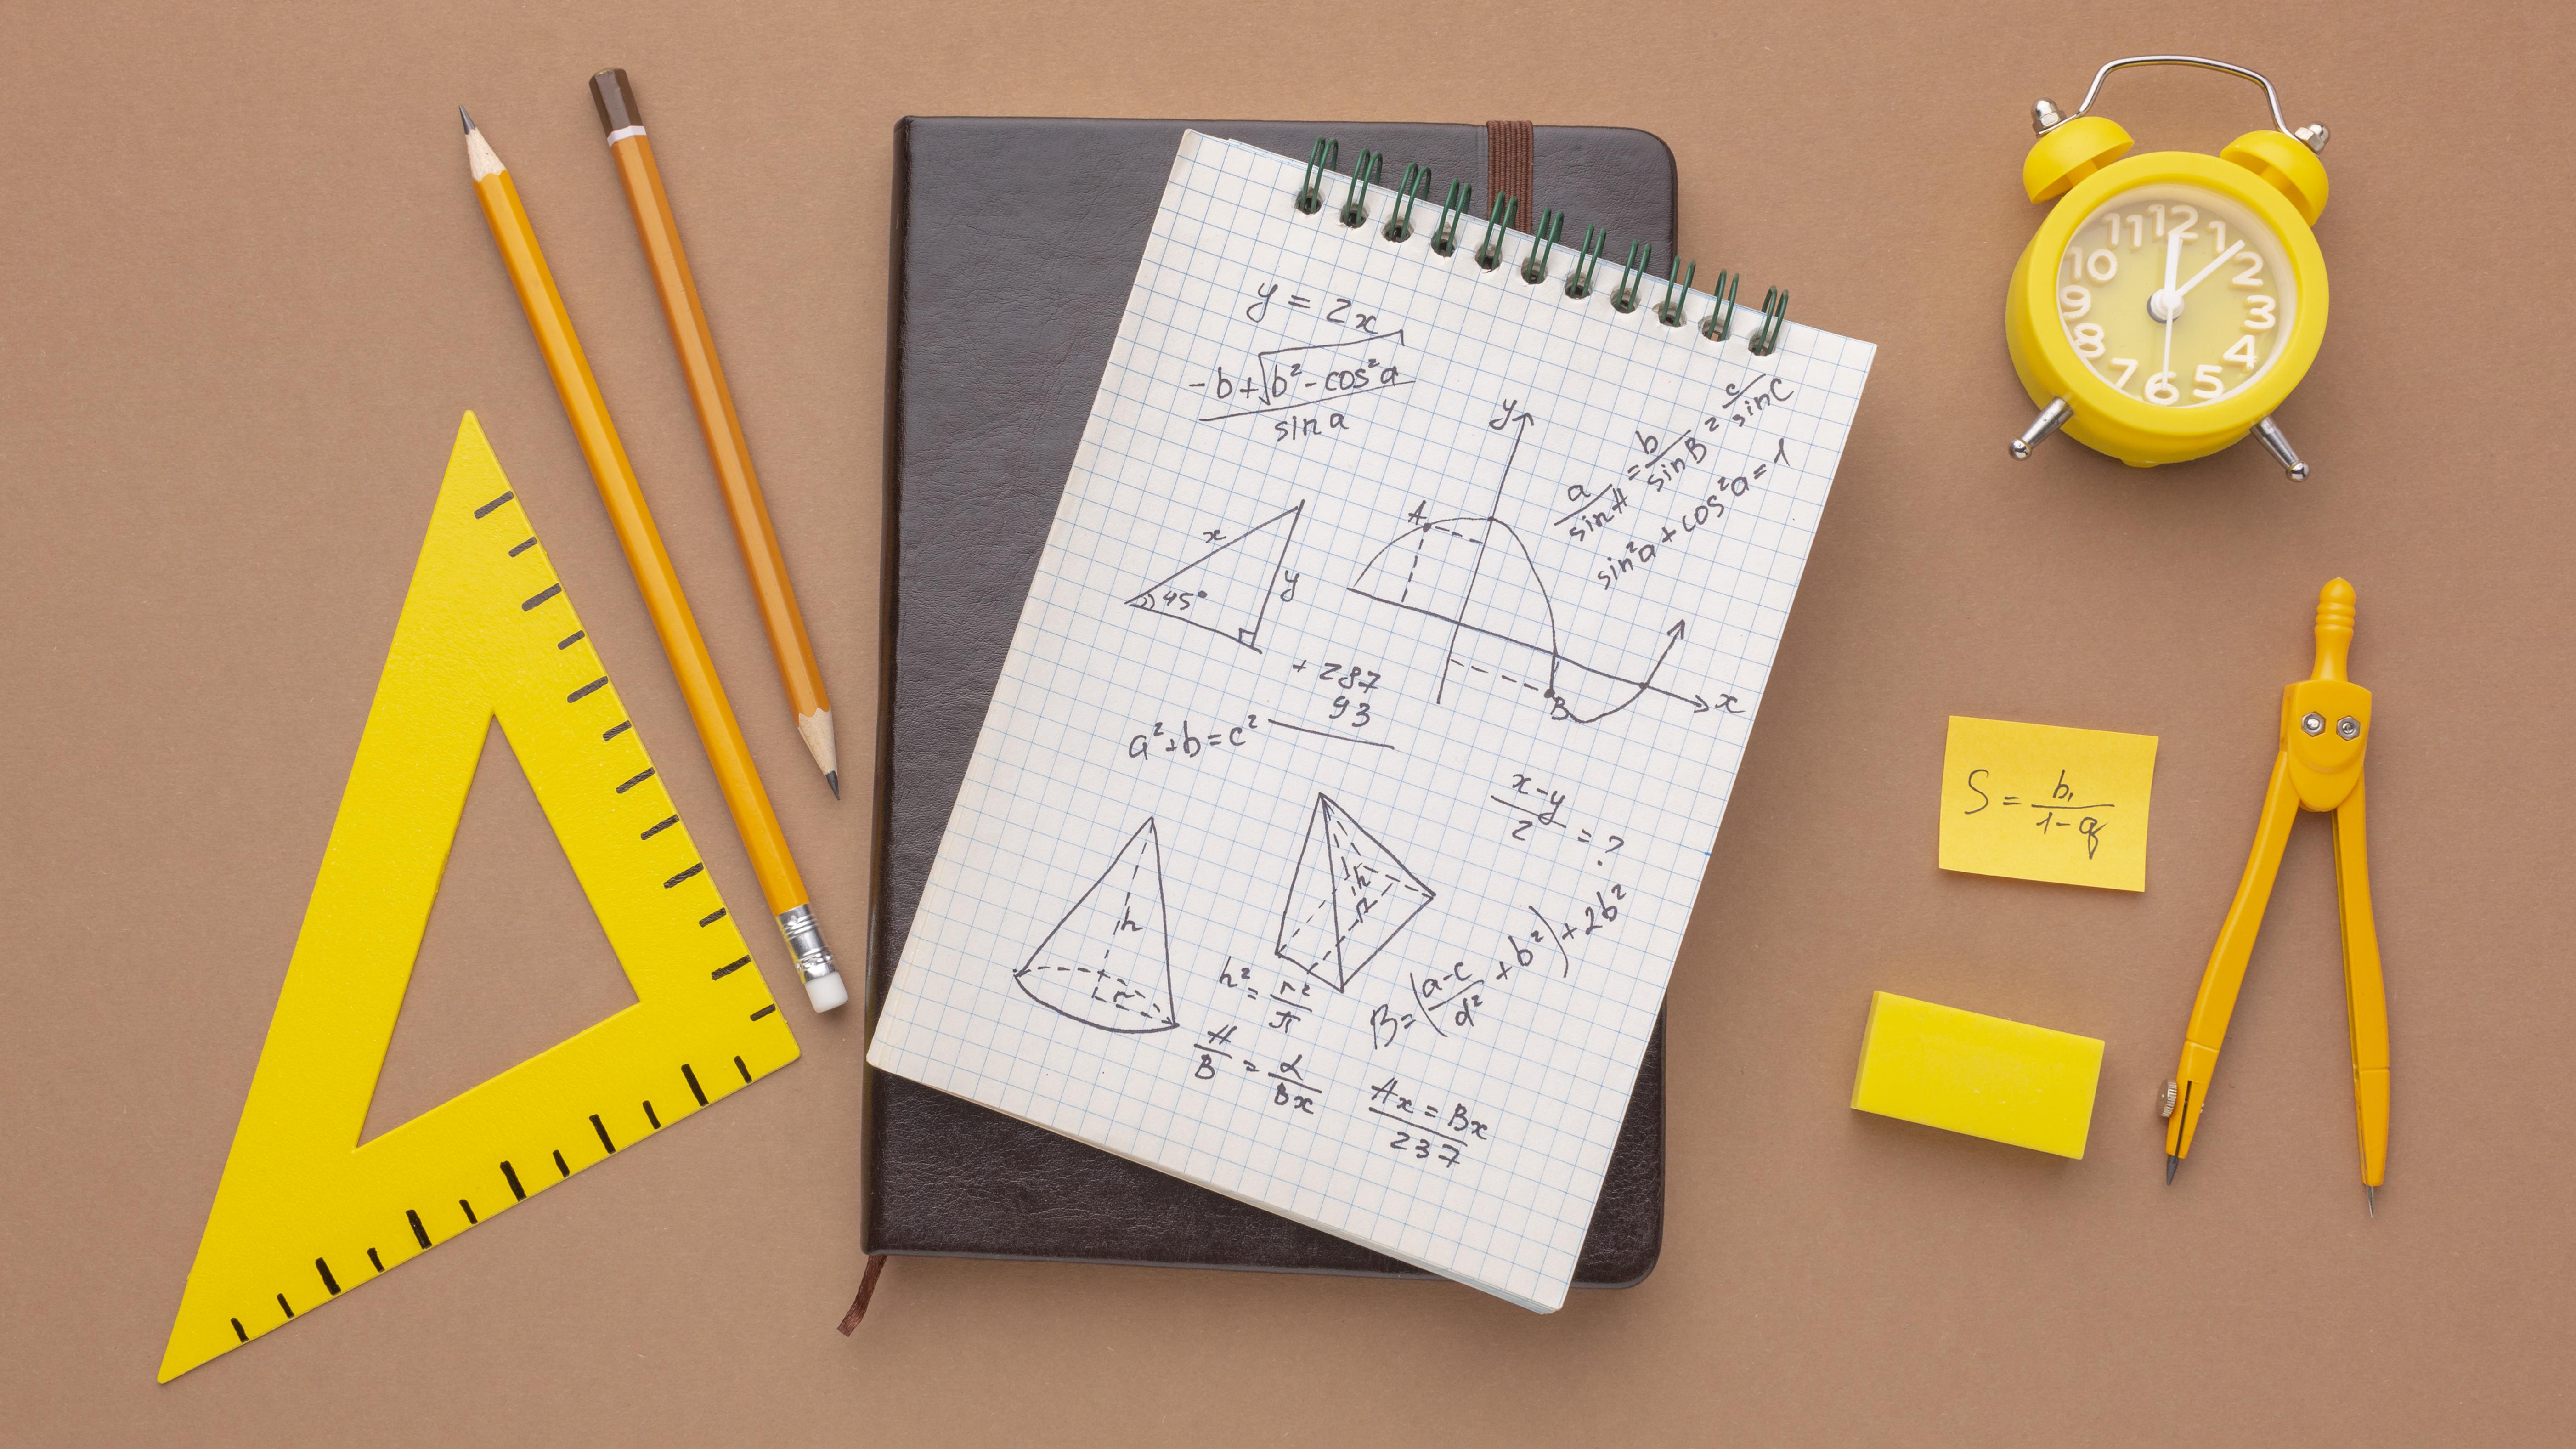 y = 2x
-b+√b²-cos²a
sin a
a/sinA = b/sinB = c/sinC
sin²a + cos²a = 1
y
A
x
45°
y
B
x
+ 287
93
a²+b=c²
x-y/2 = ?
h
r
h
h² = r²/π
B = (a-c/d² + b²) + 2b²
A/B = α/Bx
Ax = Bx
237
12
1
2
3
4
5
6
7
8
9
10
11
S = b₁/1-q